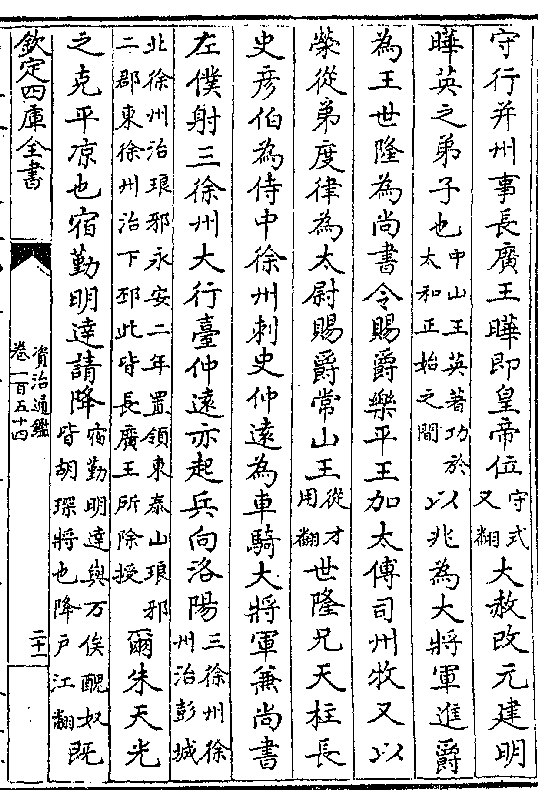 守行并州事長廣王曄即皇帝位守式又翻大赦改元建明
曄英之弟子也中山王英著功於太和正始之間以兆為大將軍進爵
為王世隆為尚書令賜爵樂平王加太傅司州牧又以
榮從弟度律為太尉賜爵常山王從才用翻世隆兄天柱長
史彦伯為侍中徐州刺史仲遠為車騎大將軍兼尚書
左僕射三徐州大行臺仲遠亦起兵向洛陽三徐州徐州治彭城
北徐州治琅邪永安二年置領東泰山琅邪二郡東徐州治下邳此皆長廣王所除授爾朱天光
之克平凉也宿勤明達請降宿勤明達與万俟醜奴既皆胡琛將也降户江翻
欽定四庫全書
資治通鑑
卷一百五十四
二十一